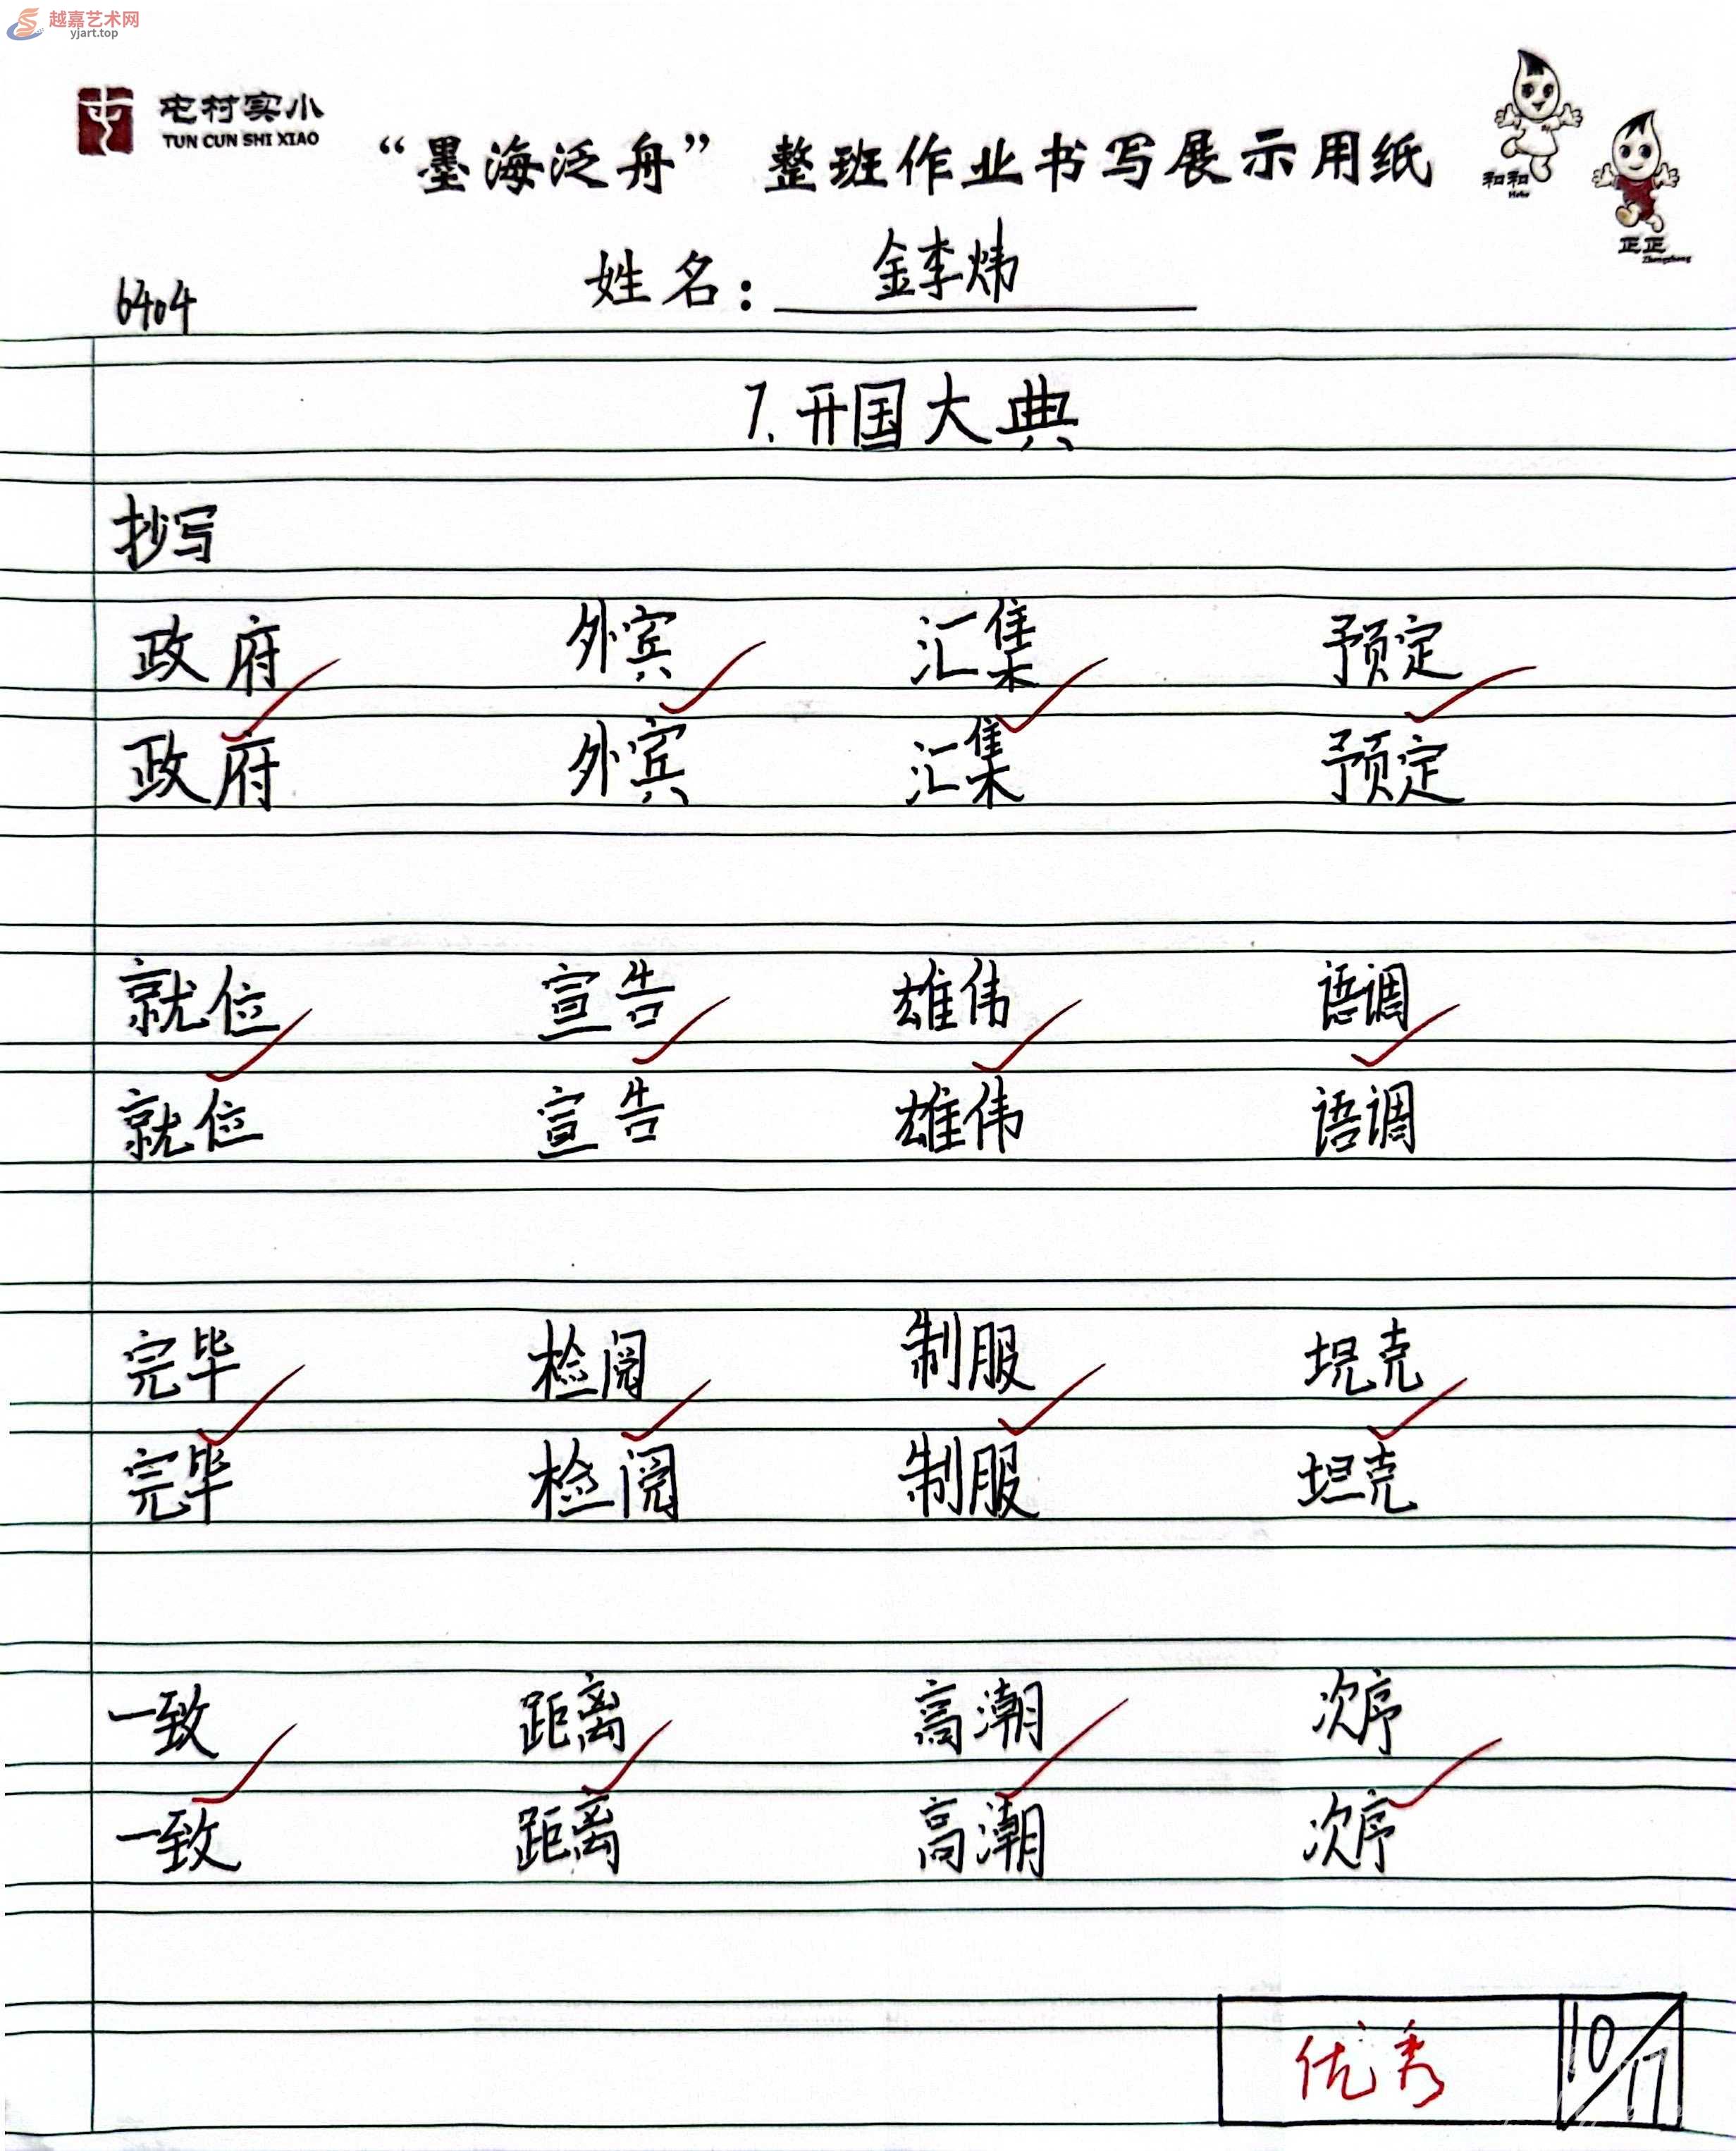 越嘉艺术网
yjart.top
屯村实小
TUN CUN SHI XIAO
“墨海泛舟” 整班作业书写展示用纸
和和
Hehe
正正
Zhengzheng
姓名: 金李炜
6404
7.开国大典
抄写
政府 外宾 汇集 预定
政府 外宾 汇集 预定
就位 宣告 雄伟 语调
就位 宣告 雄伟 语调
完毕 检阅 制服 坦克
完毕 检阅 制服 坦克
一致 距离 高潮 次序
一致 距离 高潮 次序
优秀 10/17